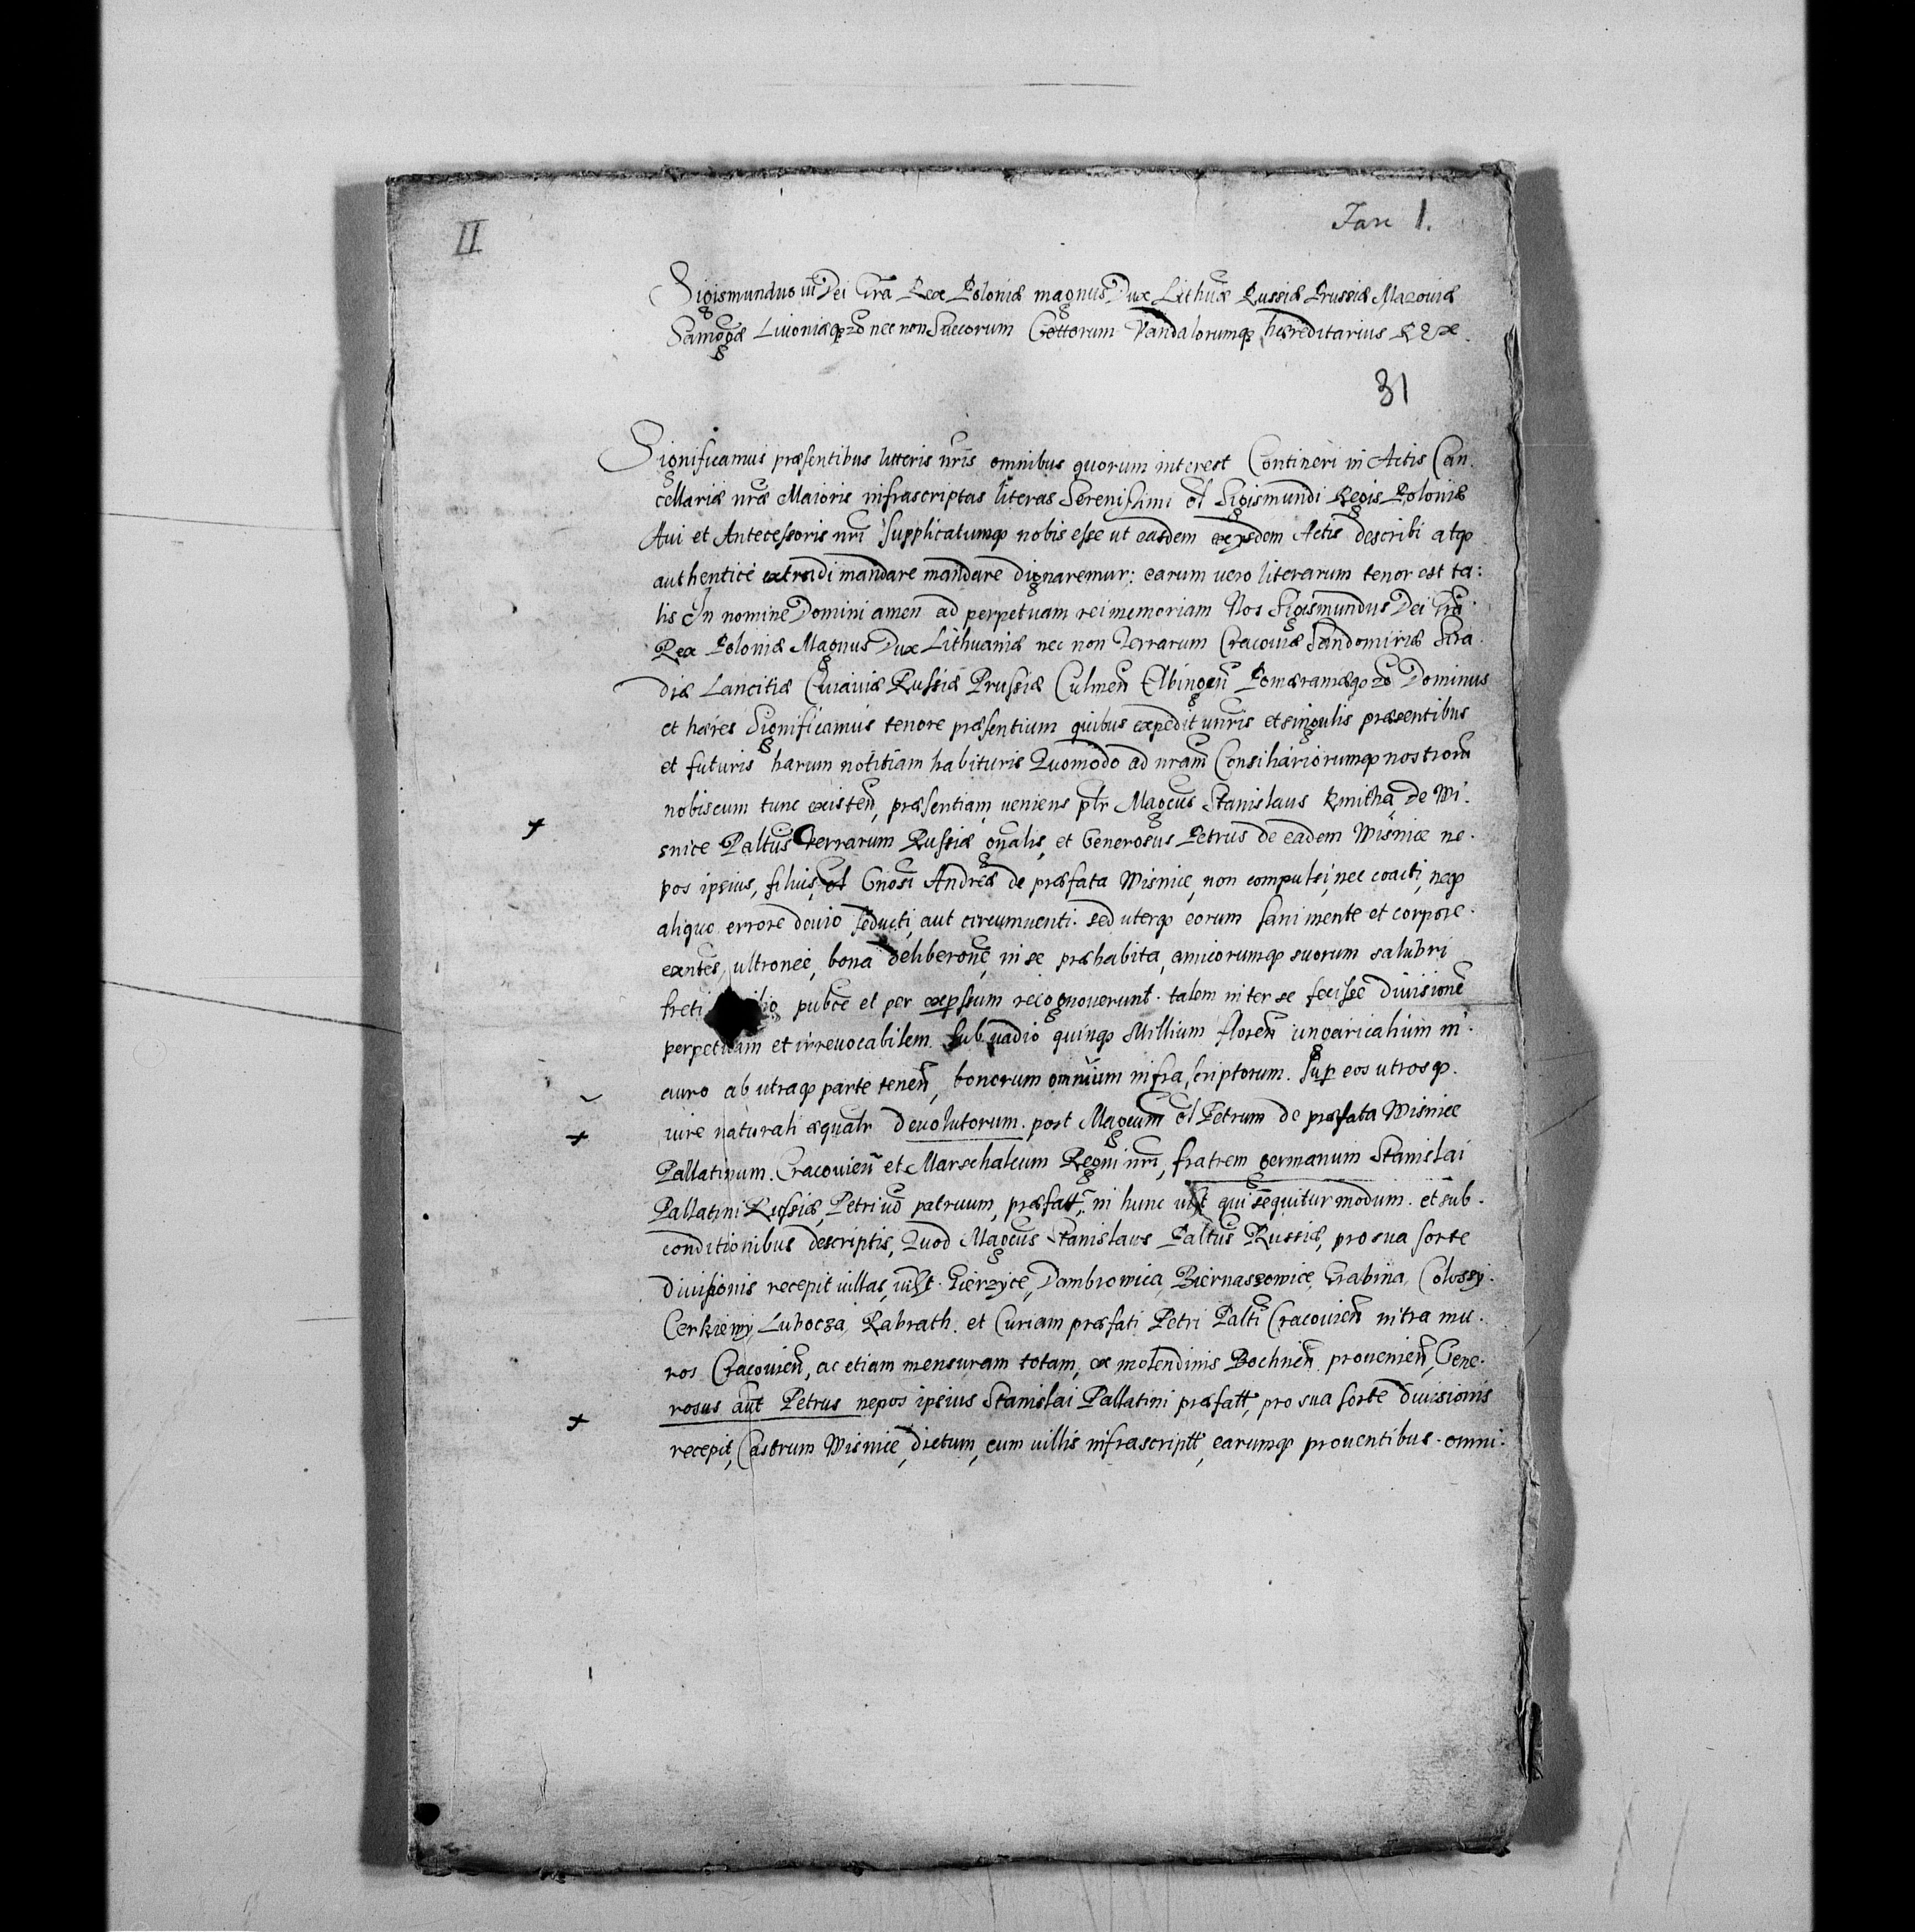 II
Fasc 1.
Sigismundus iii Dei Gra Rex Poloniæ magnus Dux Lithuæ Russiæ Prussiæ Mazouiæ
Samogæ Liuoniæq; nec non Suecorum Gottorum Vandalorumq; hæreditarius Rex.
31
Significamus præsentibus litteris nris omnibus quorum interest Contineri in Actis Can.
cellariæ nræ Maioris infrascriptas literas Serenissimi ol Sigismundi Regis Poloniæ
Aui et Antecessoris nri supplicatumq; nobis esse ut easdem ex ijsdem Actis describi atq;
authenticè extradi mandare mandare dignaremur: earum uero literarum tenor est ta:
lis In nomine Domini amen ad perpetuam rei memoriam Nos Sigismundus Dei Gra
Rex Poloniæ Magnus Dux Lithuaniæ nec non Terrarum Cracouiæ Sandomiriæ Sira.
diæ Lancitiæ Cuiauiæ Russiæ Prussiæ Culmen Elbingen Pomæraniæq; Dominus
et hæres Significamus tenore præsentium quibus expedit unris et singulis præsentibus
et futuris harum notitiam habituris Quomodo ad nram Consiliariorumq; nostrorū
nobiscum tunc existen, præsentiam ueniens plr Magcus Stanislaus Kmitha de Wi.
snice Paltus terrarum Russiæ gnalis, et Generosus Petrus de eadem Wisnice ne.
pos ipsius, filius ol Gnosi Andreæ de præfata Wisnice, non compulsi, nec coacti, neq;
aliquo errore deuio seducti, aut circumuenti. sed uterq; eorum sani mente et corpore.
exntes, ultronee, bona deliberone, in se præhabita, amicorumq; suorum salubri
freti pubce et per expssum recognouerunt. talem inter se fecisse diuisione
perpetuam et irreuocabilem. sub uadio quinq; Millium floren ungaricalium in.
auro ab utraq; parte tenen, bonorum omnium infrascriptorum. sup eos utrosq;.
iure naturali æqualr deuolutorum. post Magcum ol Petrum de præfata Wisnice
Pallatinum. Cracouien et Marschalcum Regni nri, fratrem germanum Stanislai
Pallatini Russiæ, Petri uo patruum, præfatt, in hunc uist qui sequitur modum. et sub.
conditionibus descriptis, Quod Magcus Stanislaus Paltus Russiæ, pro sua sorte
diuisionis recepit uillas, uist. Gierzyce, Dambrowica, Biernaszowice, Grabina, Colossy.
Cerkiewy, Lubocza, Rabrath. et Curiam præfati Petri Palti Cracouien intra mu.
ros Cracouien, ac etiam mensuram totam, ex molendinis Bochnen. prouenien, Gene.
rosus aut Petrus nepos ipsius Stanislai Pallatini præfatt, pro sua sorte diuisionis
recepit, Castrum Wisnice, dictum, cum uillis infrascriptt, earumq; prouentibus. omni.